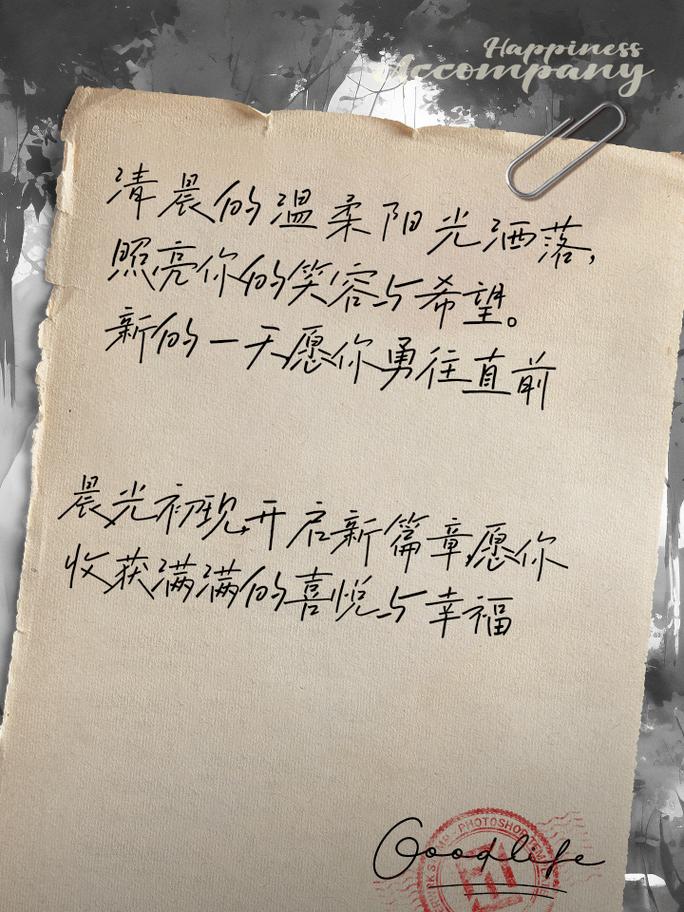 Happiness
Accompany
清晨的温柔阳光洒落,
照亮你的笑容与希望。
新的一天愿你勇往直前
晨光初现,开启新篇章,愿你
收获满满的喜悦与幸福
PHOTOSHOP
Goodlife